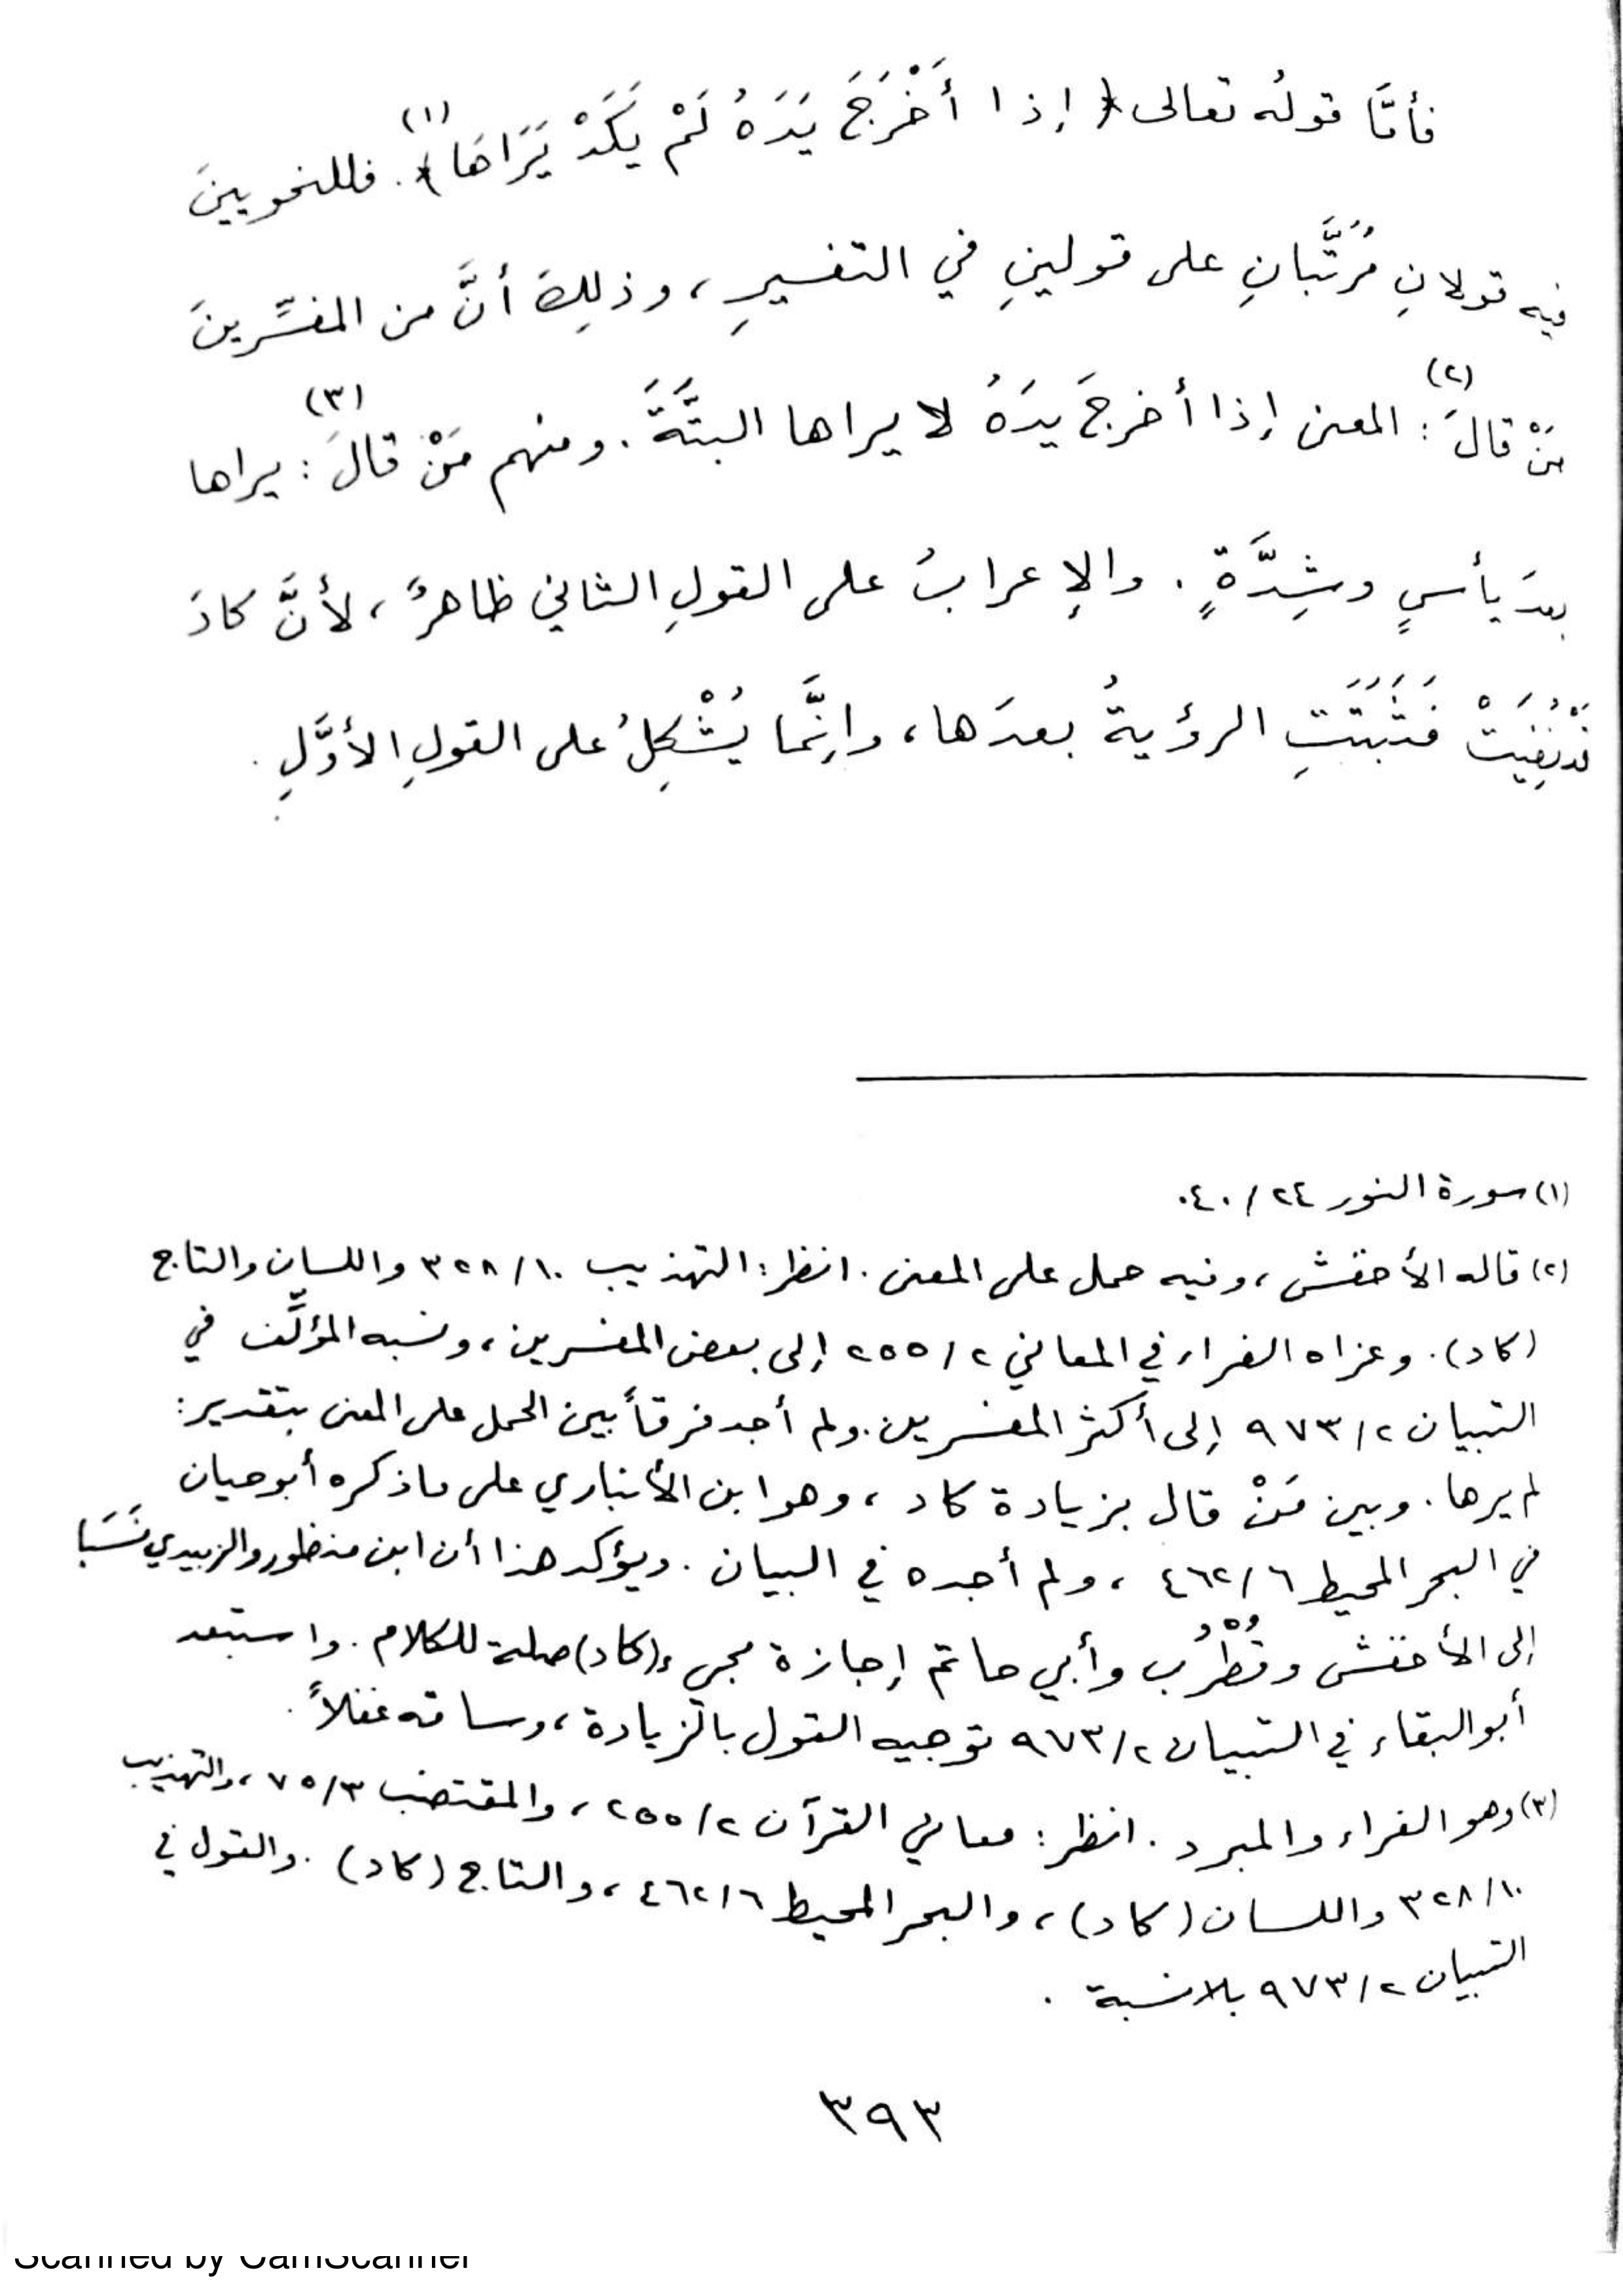 فأمَّا قولُه تعالى ﴿ إذا أَخْرَجَ يَدَهُ لَمْ يَكَدْ يَرَاهَا ﴾(١). فللنحويينَ
فيه قولانِ مُرَتَّبانِ على قولينِ في التفسيرِ، وذلِكَ أنَّ من المفسِّرينَ
مَنْ قالَ(٢): المعنى إذا أخرجَ يدَهُ لا يراها البتَّةَ. ومنهم مَنْ قالَ(٣): يراها
بعدَ يأسٍ وشِدَّةٍ. والإعرابُ على القولِ الثاني ظاهرٌ، لأنَّ كادَ
قدْ نُفِيَتْ فَثَبَتَتِ الرؤيةُ بعدَها، وإنَّما يُشْكِلُ على القولِ الأوَّلِ.
(١) سورة النور ٢٤ / ٤٠.
(٢) قاله الأخفش، وفيه حمل على المعنى. انظر: التهذيب ١٠/ ٣٢٨ واللسان والتاج
(كاد). وعزاه الفراء في المعاني ٢ / ٢٥٥ إلى بعض المفسرين، ونسبه المؤلِّف في
التبيان ٢/ ٩٧٣ إلى أكثر المفسرين. ولم أجد فرقاً بين الحمل على المعنى بتقدير:
لم يرها. وبين مَنْ قال بزيادة كاد، وهو ابن الأنباري على ما ذكره أبو حيان
في البحر المحيط ٦/ ٤٦٢، ولم أجده في البيان. ويؤكد هذا أن ابن منظور والزبيدي نَسَبَا
إلى الأخفش وقُطْرُب وأبي حاتم إجازة مجيء (كاد) صلة للكلام. واستبعد
أبو البقاء في التبيان ٢/ ٩٧٣ توجيه القول بالزيادة، وساقه غفلاً.
(٣) وهو الفراء والمبرد. انظر: معاني القرآن ٢/ ٢٥٥، والمقتضب ٣/ ٧٥، والتهذيب
١٠/ ٣٢٨ واللسان (كاد)، والبحر المحيط ٦/ ٤٦٢، والتاج (كاد). والقول في
التبيان ٢/ ٩٧٣ بلا نسبة.
٣٩٣
Scanned by CamScanner